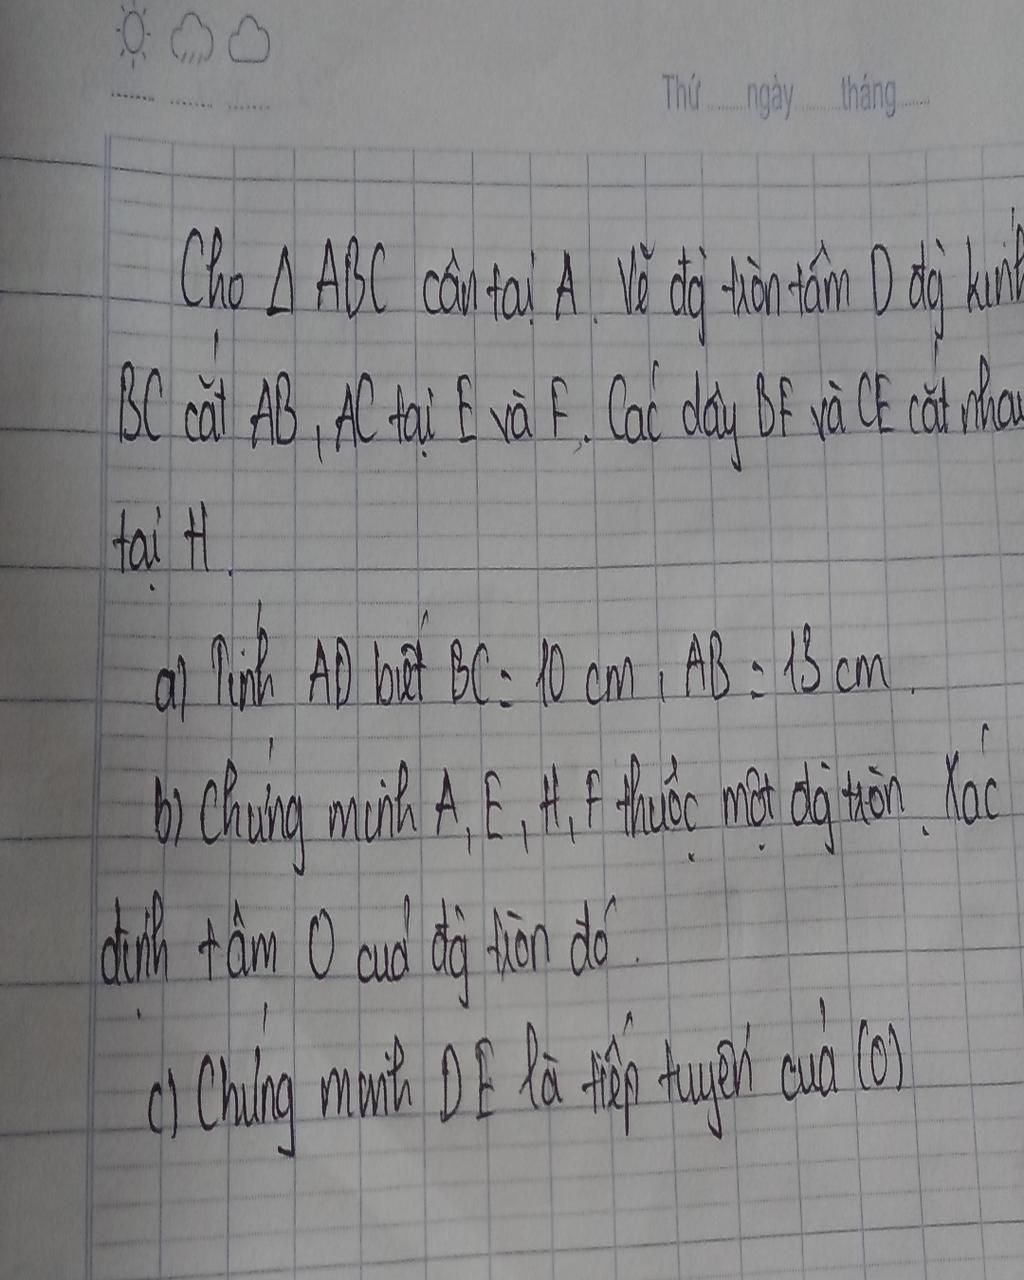 Thứ ngày tháng
Cho Δ ABC cân tại A. Vẽ đg tròn tâm D đg kính
BC cắt AB, AC tại E và F. Các dây BF và CE cắt nhau
tại H.
a) Tính AD biết BC = 10 cm, AB = 13 cm.
b) Chứng minh A, E, H, F thuộc một đg tròn. Xác
định tâm O của đg tròn đó.
c) Chứng minh DE là tiếp tuyến của (O)